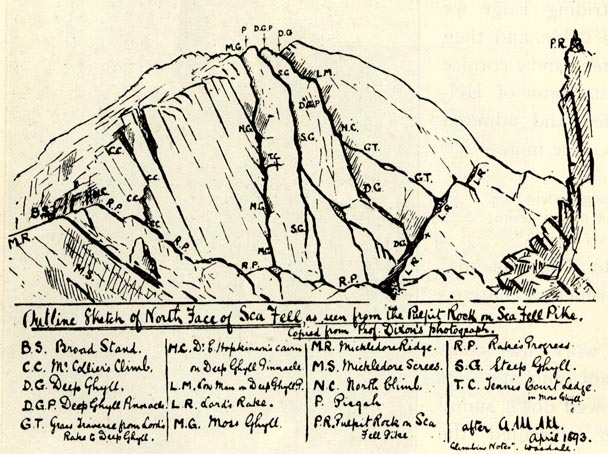 P D.G.P D.G
M.G
P.R.
S.G.
L.M.
D.G.P
M.G.
N.C.
C.C.
S.G.
G.T.
T.C.
C.C.
D.G.
G.T.
L.R.
C.C.
M.G.
L.R.
B.S.
R.P.
S.G.
R.P.
D.G.
M.R.
M.G.
M.S.
R.P.
R.P.
L.R.
Outline Sketch of North Face of Sca Fell, as seen from the Pulpit Rock on Sca Fell Pike.
Copied from Prof. Dixon's photograph.
B.S. Broad Stand.
C.C. Mr Collier's Climb.
D.G. Deep Ghyll.
D.G.P. Deep Ghyll Pinnacle.
G.T. Grass Traverse from Lord's
Rake to Deep Ghyll.
H.C. Dr E. Hopkinson's cairn
on Deep Ghyll Pinnacle
L.M. Low Man on Deep Ghyll P.
L.R. Lord's Rake.
M.G. Moss Ghyll.
M.R. Mickledore Ridge.
M.S. Mickledore Screes.
N.C. North Climb.
P. Pisgah
P.R. Pulpit Rock on Sca
Fell Pike
R.P. Rake's Progress.
S.G. Steep Ghyll.
T.C. Tennis Court Ledge.
in Moss Ghyll
after
April 1893.
Climbing Notes". Wasdale.